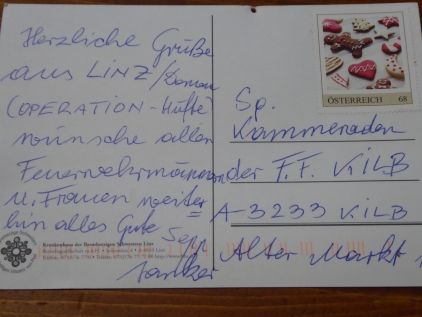 Herzliche Grüße
aus LINZ/Donau
(OPERATION-Hüfte
wünsche allen
Feuerwehrmännern
u. Frauen weiter=
hin alles Gute
Sepp
ÖSTERREICH 68
Sp.
Kammeraden
der F.F. KILB
A-3233 KILB
Alter Markt
Krankenhaus der Barmherzigen Schwestern Linz